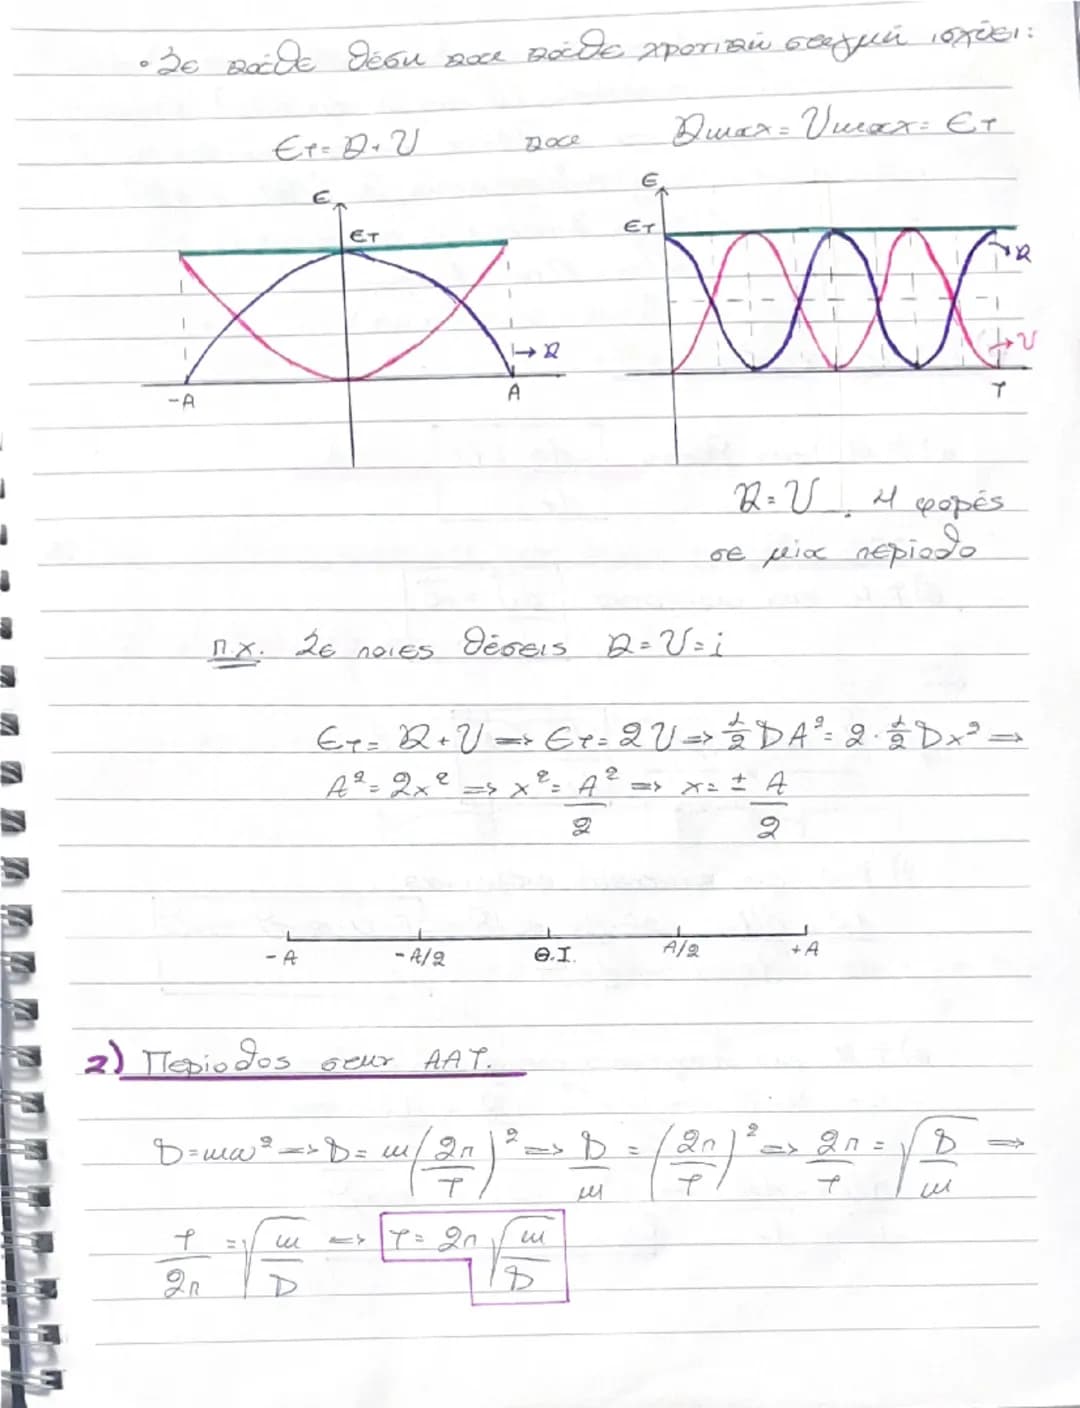 • Σε κάθε θέση και κάθε χρονική στιγμή ισχύει:
ΕΤ = K + U και Kmax = Umax = ΕΤ
Ε
ΕΤ
→ K
-A
A
Ε
ΕΤ
→ K
→ U
T
K = U, 4 φορές
σε μία περίοδο
π.χ. Σε ποιες θέσεις K = U = ;
ΕΤ = K + U => ΕΤ = 2U => 1/2 DA² = 2 · 1/2 Dx² =>
A² = 2x² => x² = A²/2 => x = ± A/2
-A -A/2 Θ.Ι. A/2 +A
2) Περίοδος στην ΑΑΤ.
D = mω² => D = m(2π/T)² => D/m = (2π/T)² => 2π/T = √(D/m) =>
T/2π = √(m/D) => T = 2π√(m/D)